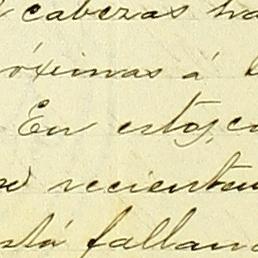 cabezas ha
óximas á
En estos, co
recientem
stá fallan